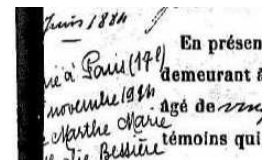 Juin 1884
En présen
né à Paris (17e)
demeurant à
novembre 1924
âgé de
Marthe Marie
témoins qui
Bessière